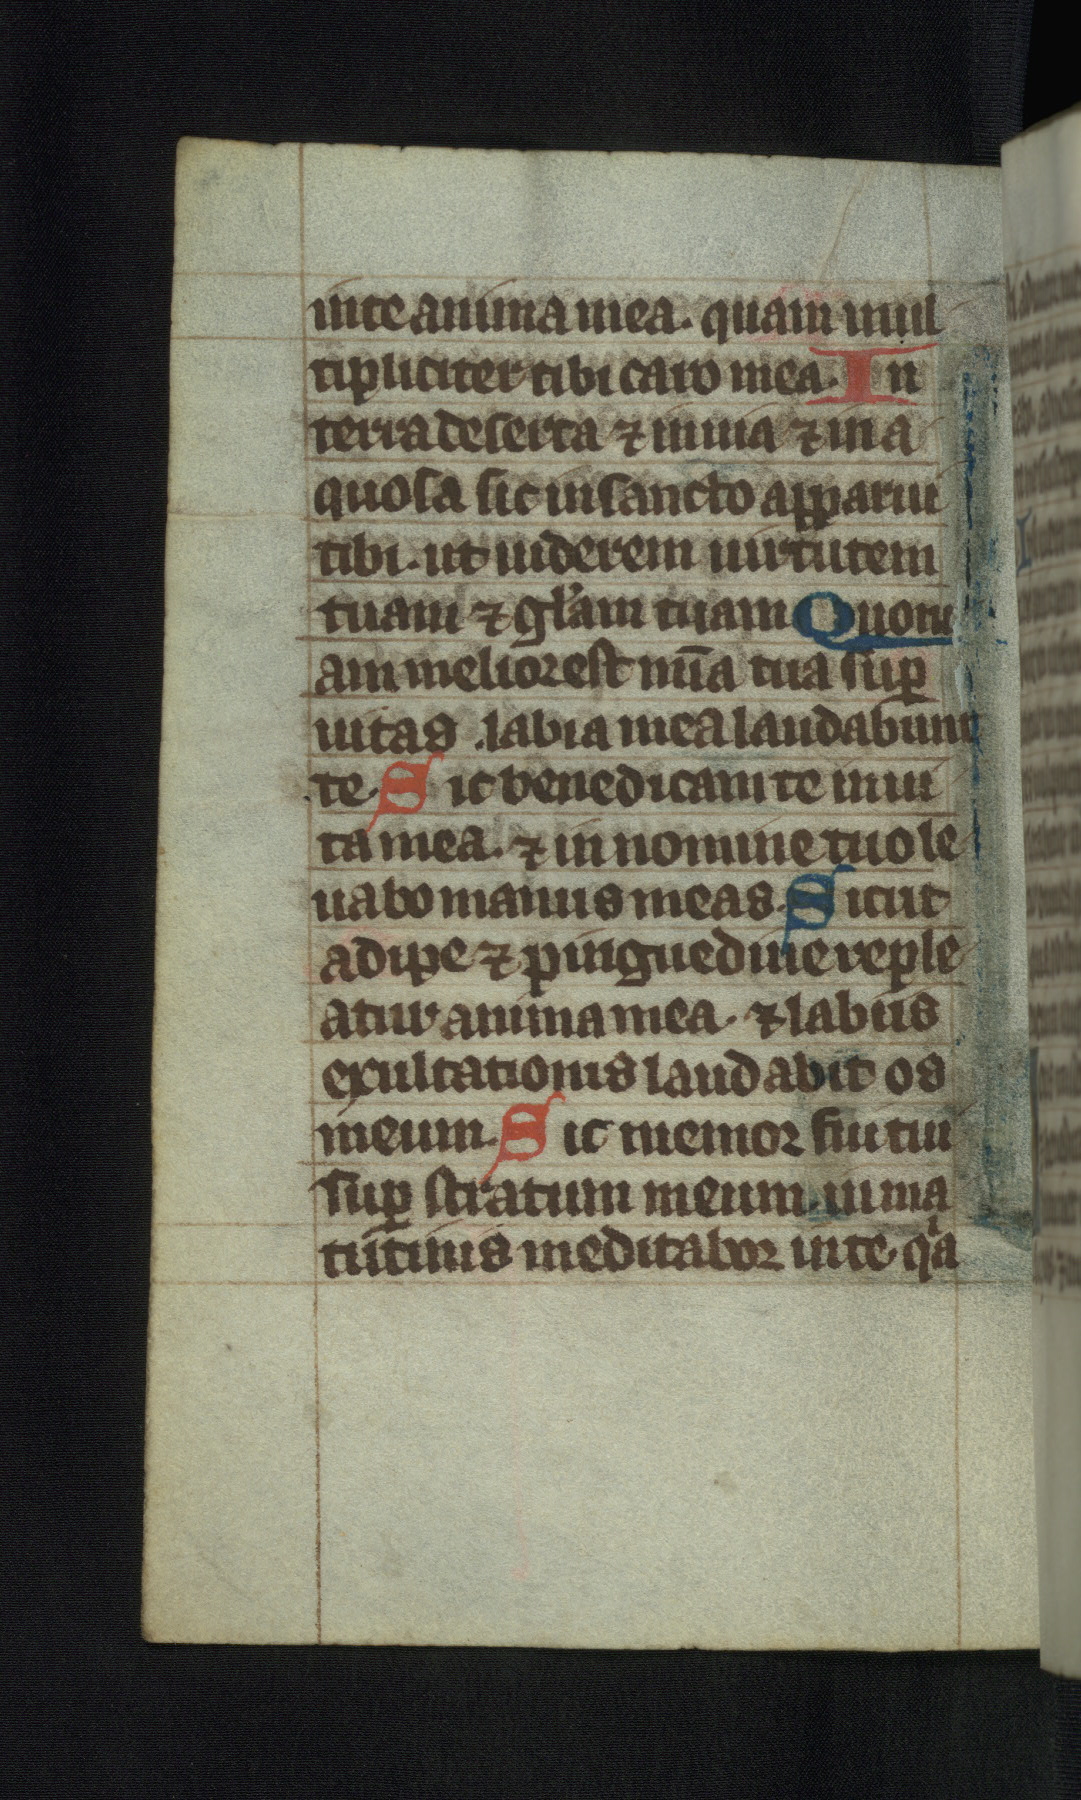 in te anima mea. quam mul
tipliciter tibi caro mea. In
terra deserta ⁊ inuia ⁊ in a
quosa sic in sancto apparui
tibi. ut uiderem uirtutem
tuam ⁊ gl'am tuam Quoni
am melior est mīa tua sup̱
uitas .labia mea laudabunt
te. Sic benedicam te in ui
ta mea. ⁊ in nomine tuo le
uabo manus meas. Sicut
adipe ⁊ pinguedine reple
atur anima mea. ⁊ labiis
exultationis laudabit os
meum. Sic memor fui tui
sup̱ stratum meum. in ma
tutinis meditabor in te. qͥa